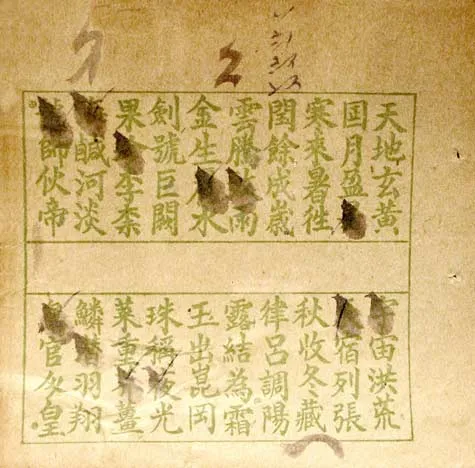 2
天地玄黃
囸月盈
寒來暑徃
閏餘成歲
雲騰雨
金生水
劍號巨闕
果李柰
鹹河淡
師伙帝
宇宙洪荒
宿列張
秋收冬藏
律呂調陽
露結為霜
玉出崑岡
珠稱夜光
菜重芥薑
鱗羽翔
官皇